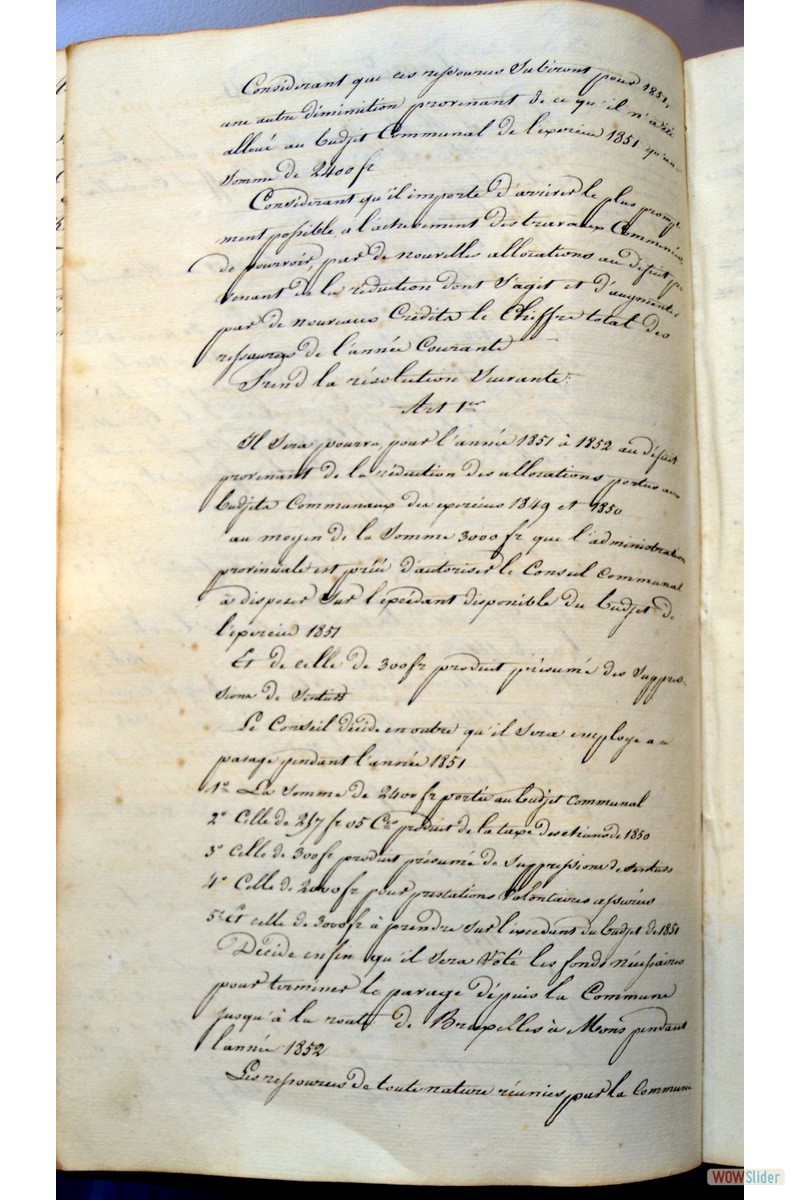 Considérant que ces ressources subiront pour 1851,
une autre diminution provenant de ce qu'il n'a été
alloué au budjet Communal de l'exercice 1851 qu'une
somme de 2400 fr
Considérant qu'il importe d'arriver le plus prompte
ment possible, à l'achevement des travaux Commencés,
de pourvoir, par de nouvelles allocations au déficit pro
venant de la réduction dont s'agit et d'augmenter
par de nouveaux Crédits le Chiffre total des
ressources de l'année Courante
Prend la résolution Suivante:
Art 1er
Il sera pourvu, pour l'année 1851 à 1852 au déficit
provenant de la réduction des allocations portées aux
budjets Communaux des exercices 1849 et 1850
au moyen de la Somme 3000 fr que l'administration
provinciale est priée d'autoriser le Conseil Communal
à disposer sur l'excédant disponible du budjet de
l'exercice 1851
Et de celle de 300 fr produit présumé des suppres-
sions de sentiers
Le Conseil décide en outre qu'il sera employé au
pavage pendant l'année 1851
1° La somme de 2400 fr portée au budjet communal
2° Celle de 257 fr 05 Cs produit de la taxe des chiens de 1850
3° Celle de 300 fr produit présumé de suppressions de sentiers
4° Celle de 2000 fr pour prestations volontaires assurées
5° Et celle de 3000 fr à prendre sur l'excédant du budjet de 1851
Décide enfin qu'il sera voté les fonds nécessaires
pour terminer le pavage depuis la Commune
jusqu'à la route de Bruxelles à Mons pendant
l'année 1852
Les ressources de toute nature réunies par la Commune
WOWSlider